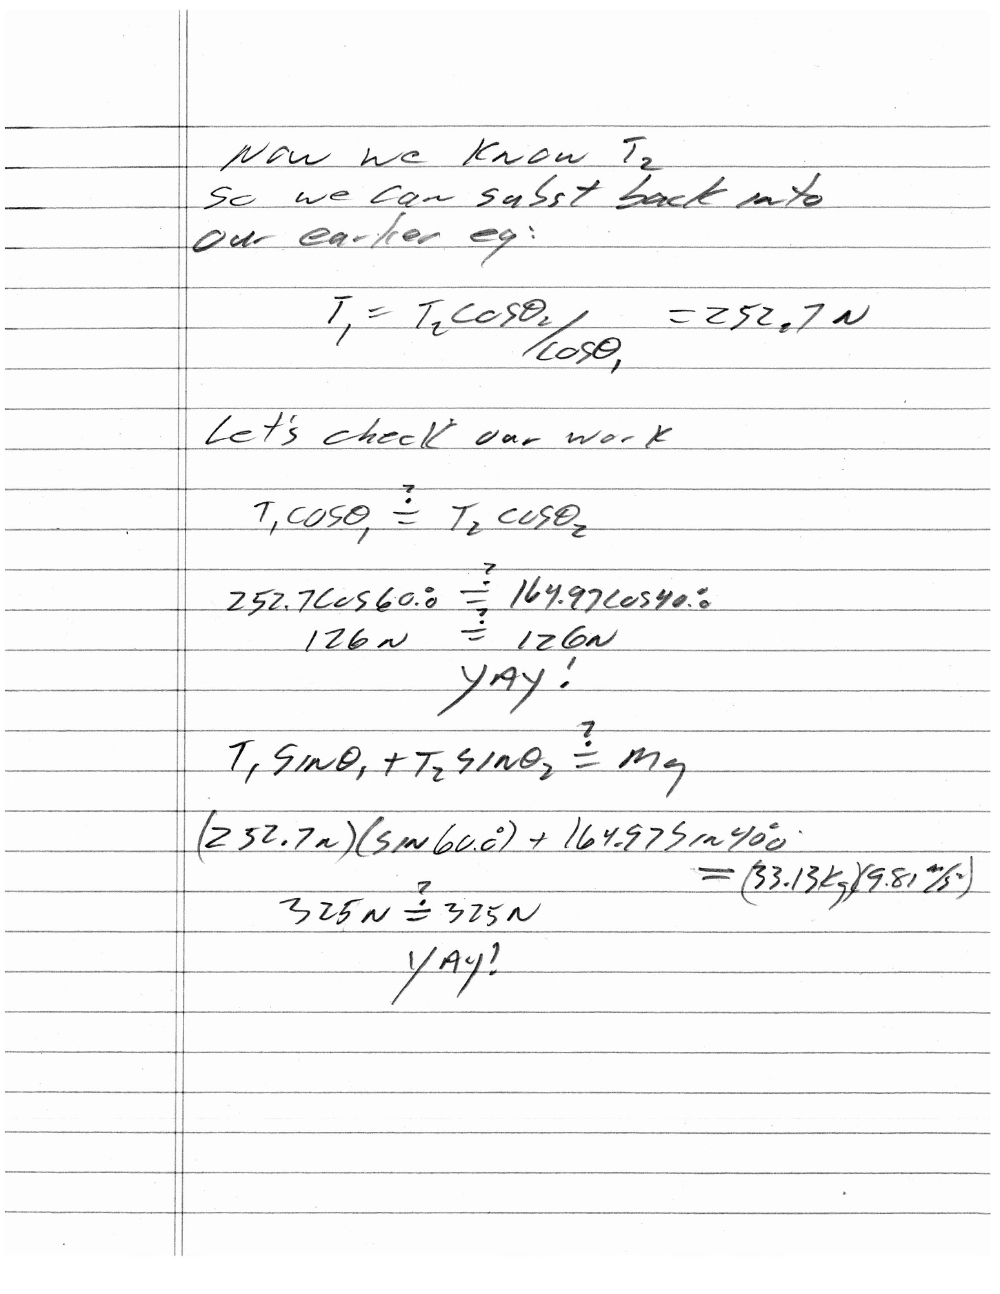 Now we know T₂
so we can subst back into
our earlier eq:
T₁ = T₂cosθ₂/cosθ₁ = 252.7 N
Let's check our work
T₁cosθ₁ ≟ T₂ cosθ₂
252.7cos60.° ≟ 164.97cos40.°
126 N ≟ 126 N
YAY!
T₁ sinθ₁ + T₂ sinθ₂ ≟ mg
(252.7 N)(sin60.°) + 164.97sin40.°
= (33.13kg)(9.81 m/s²)
325 N ≟ 325 N
YAY!